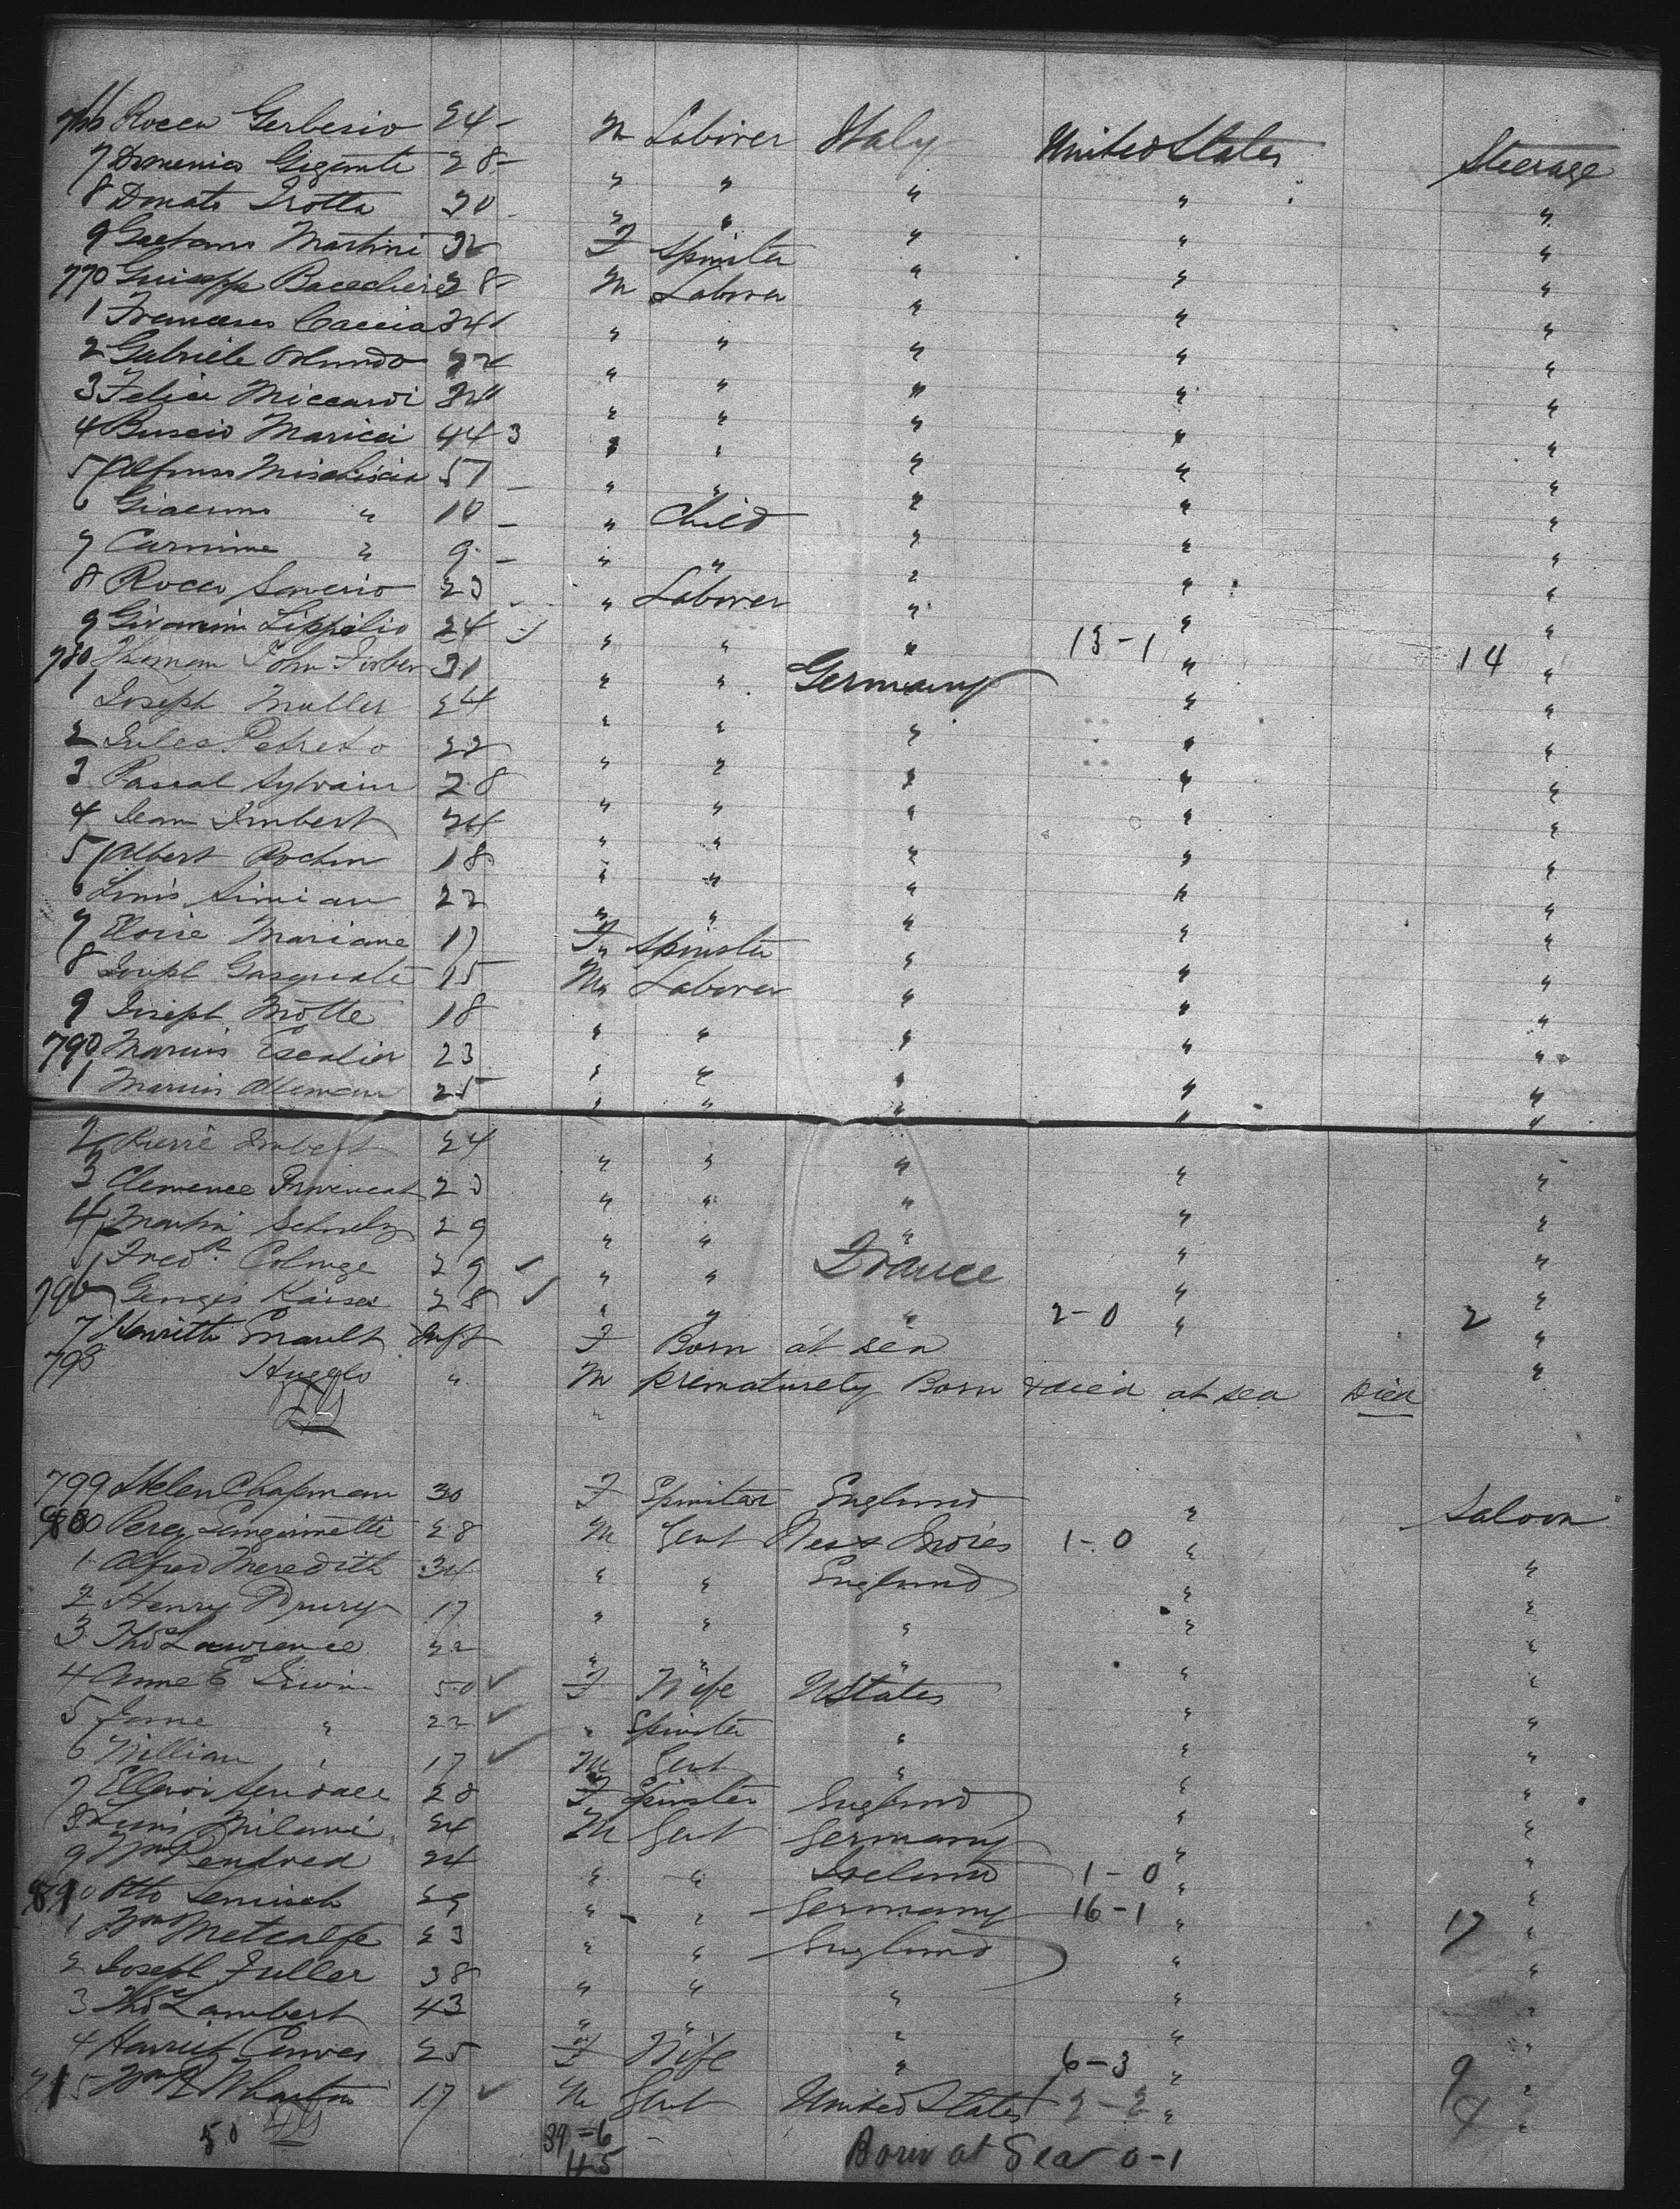 766 Rocco Gerbesio 24 - M Laborer Italy United States Steerage
7 Domenico Gigante 28 - " " " " "
8 Donato Trotta 30 - " " " " "
9 Gaetano Martini 32 F Spinster " " "
770 Guiseppe 28 - M Laborer " " "
1 Francesco Caccia 34 " " " " "
2 Gabriele 22 " " " " "
3 Felice Miccardi " " " " "
4 Maricci 44 3 " " " " "
5 Alfonso 57 - " " " " "
6 Giacomo " 10 - " Child " " "
7 Carmine " 9 - " " " " "
8 Rocco Saverio 23 " Laborer " " "
9 Giovanni Lippolio 24 " " " 13-1 " 14 "
780 John 31 " " Germany " "
1 Joseph Muller 24 " " " " "
2 Jules Petreto 22 " " " " "
3 Pascal Sylvain 28 " " " " "
4 Jean Imbert 24 " " " " "
5 Albert Rochon 18 " " " " "
6 Louis Simian 22 " " " " "
7 Eloise Mariane 17 F Spinster " " "
8 Joseph 15 M Laborer " " "
9 Joseph Motte 18 " " " " "
790 Marius Escalier 23 " " " " "
1 Marius Alleman 25 " " " " "
2 Pierre Imbert 24 " " " " "
3 Clemence Provencal 23 " " " " "
4 Martin Schmelz 29 " " " " "
5 Fredk Colonge 29 ✓ " " France " "
796 Georges Kaiser 28 ✓ " " " 2-0 " 2 "
7 Henriette Enault Inft F Born at sea "
798 Hugglo " M prematurely Born & died at sea Died
799 Helen Chapman 30 F Spinster England " Saloon
800 Percy 28 M Gent West Indies 1-0 " "
1 Alfred Meredith 34 " " England " "
2 Henry Drury 17 " " " " "
3 Thos Lawrence 22 " " " " "
4 Anne E Irwin 50 ✓ F Wife UStates " "
5 Jane " 22 ✓ " Spinster " " "
6 William " 17 ✓ M Gent " " "
7 28 F Spinster England " "
8 Louis Milani 24 M Gent Germany " "
9 Wm Pendred 24 " " Ireland 1-0 " "
810 Otto 29 " " Germany 16-1 " 17 "
1 Wm Metcalfe 23 " " England " "
2 Joseph Fuller 38 " " " " "
3 Thos Lambert 43 " " " " "
4 Harriet 25 F Wife " 6-3 " 9 "
5 Wm R Wharton 17 ✓ M Gent United States 2-2 " 4 "
50 39=6
45 Born at Sea 0-1